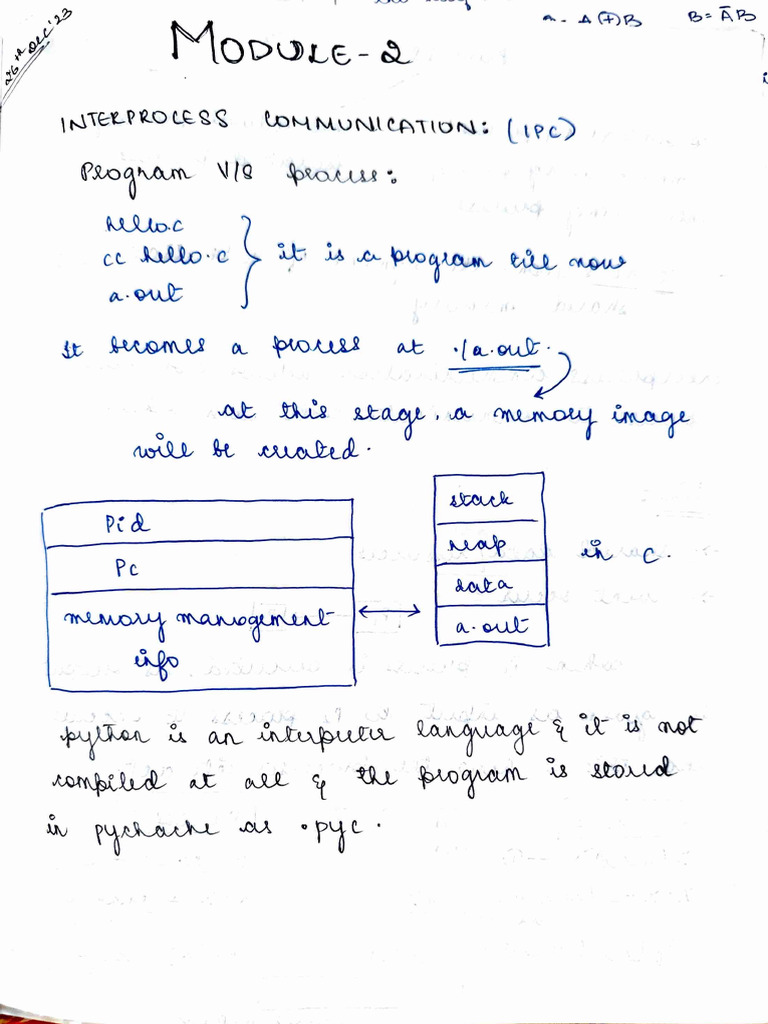 26th DEC'23
a. A(+)B B= ĀB
MODULE-2
INTERPROCESS COMMUNICATION: (IPC)
Program V/S process:
hello.c
cc hello.c } it is a program till now
a.out
It becomes a process at ./a.out.
at this stage, a memory image
will be created.
Pid
Pc
memory management
info
stack
heap
data
a.out
in c.
python is an interpreter language & it is not
compiled at all & the program is stored
in pychache as .pyc.